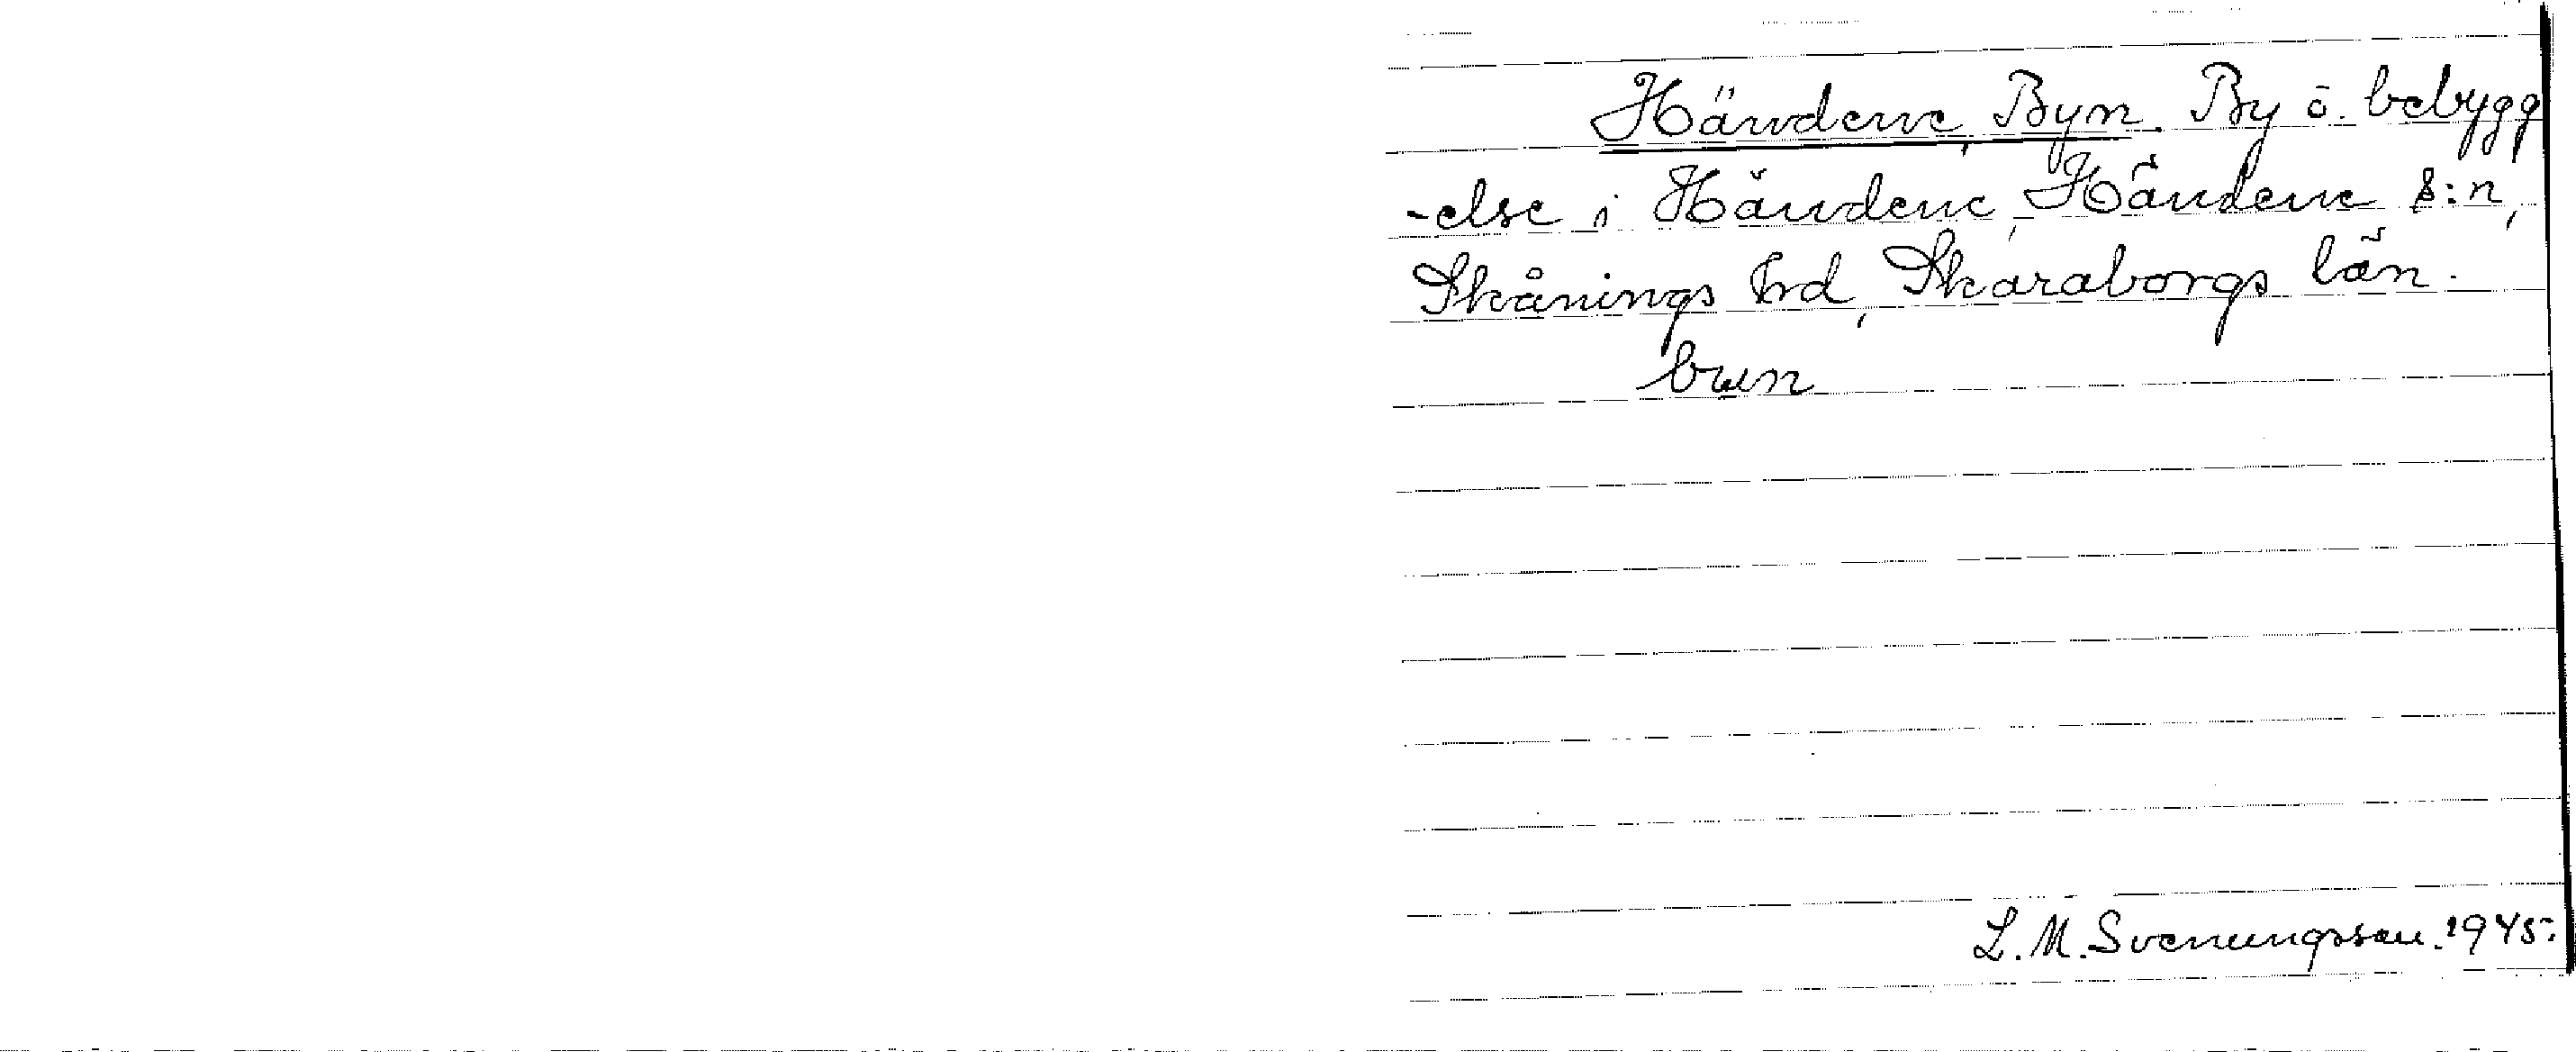 Händene, Byn. By o. bebygg
-else i Händene, Händene s:n,
Skånings hrd, Skaraborgs län.
L. M. Svenungsson. 1945.